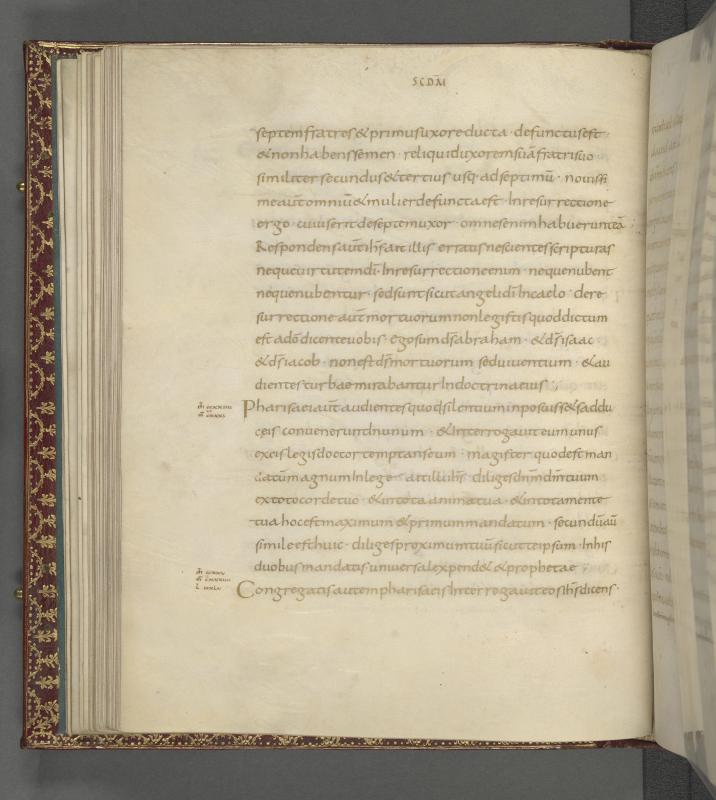 SCDM̄
septemfratres&primusuxoreducta· defunctusest
&nonhabenssemen· reliquiduxoremsuāfratrisuo·
similitersecundus&tertius usq· adseptimū· novissi
meaūtomniū&mulierdefunctaest· Inresurrectione
ergo· cuiuseritdeseptemuxor· omnesenimhabuerunteā
Respondensaūtih̄saitillis erratisnescientesscripturas
nequevirtutemdī· Inresurrectioneenim· nequenubent
nequenubentur· sedsuntsicutangelidī· Incaelo· dere
surrectione aūtmortuorumnonlegistisquoddictum
est adō dicentevobis· egosumds̄abraham· &ds̄isaac
&ds̄iacob· nonestds̄mortuorum seduiuentium· &au
dientesturbaemirabanturIndoctrinaeius·
Pharisaeiaūtaudientesquodsilentiuminposuiss&saddu
ceis convenerunt Inunum· &Interrogaviteumunus
exeislegisdoctortemptanseum· magister quodestman
datūmagnumInlege· aitilliih̄s· diligesdn̄mdm̄tuum
extotocordetuo· &Intotaanimatua· &Intotamente
tua hocestmaximum&primummandatum· secundūaū
simileesthuic· diligesproximumtuūsicutteipsum· Inhis
duobusmandatisuniversalexpend& &prophetae·
CongregatisautempharisaeisInterrogaviteosih̄sdicens·